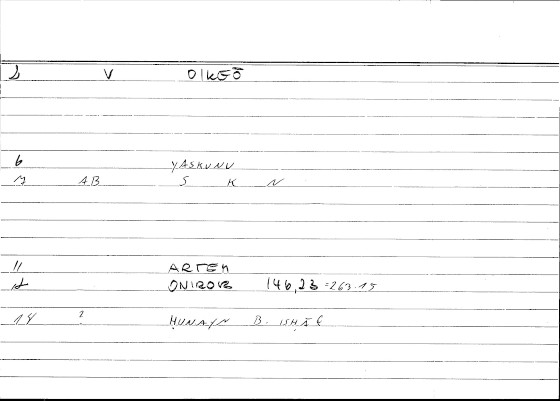 2 V OIKEŌ
6 YASKUNU
7 AB S K N
11 ARTEM
12 ONIROCR 146,23 =263.15
14 ? ḤUNAYN B. ISḤĀQ